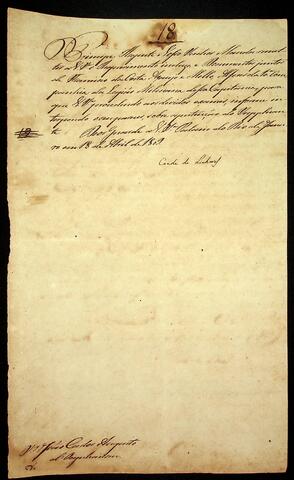 18
Principe Regente Nosso Senhor Manda remet-
ter a V. S.ª o Requerimento incluso e Documentos juntos
de da Costa Araujo e Mello,
panhia da Legião Miliciana dessa Capitania; para
que V. S.ª procedendo as devidas informe in-
terpondo o seu parecer, sobre a pertenção do Supplican-
te. Deos Guarde a V. S.ª Palacio do Rio de Janei-
ro em 18 de Abril de 1809
Conde de Linhares
18
João Carlos Augusto
d'Oeynhausen